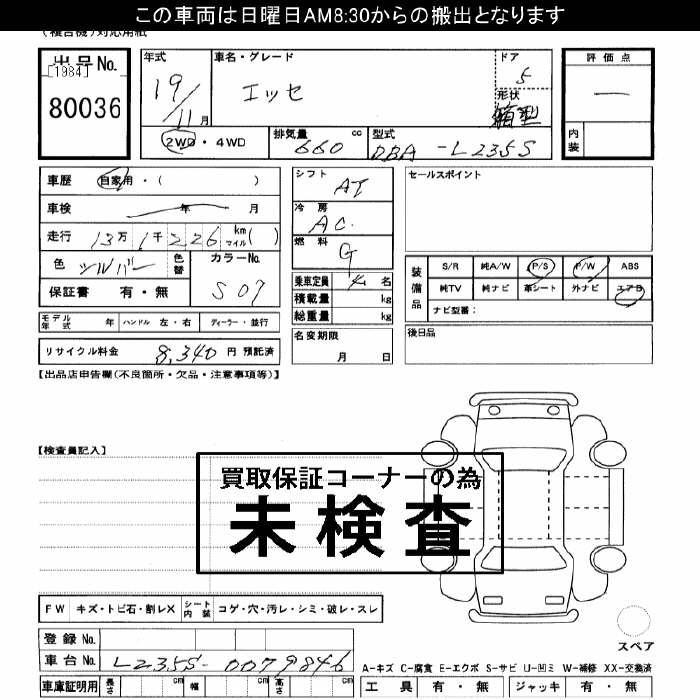 この車両は日曜日AM8:30からの搬出となります
(複合機)対応用紙
出品No.
[1984]
80036
年式
19/11月
車名・グレード
エッセ
ドア
5
形状
箱型
評価点
内装
2WD・4WD
排気量
660 cc
型式
DBA-L235S
車歴 自家用・( )
車検 年 月
走行 13万1千226 km マイル( )
色 シルバー
色替
カラーNo.
S07
保証書 有・無
シフト
AT
冷房
AC.
燃料
G
乗車定員 4名
積載量 kg
総重量 kg
名変期限
月 日
セールスポイント
装備品
S/R 純A/W P/S P/W ABS
純TV 純ナビ 革シート 外ナビ エアB
ナビ型番：
後日品
モデル年式 年 ハンドル 左・右 ディーラー・並行
リサイクル料金 8,340 円 預託済
【出品店申告欄(不良箇所・欠品・注意事項等)】
【検査員記入】
買取保証コーナーの為
未検査
FW キズ・トビ石・割レX シート内装 コゲ・穴・汚レ・シミ・破レ・スレ
スペア
登録No.
車台No. L235S-0079846
A-キズ C-腐食 E-エクボ S-サビ U-凹ミ W-補修 XX-交換済
車庫証明用 長さ cm 幅 cm 高さ cm
工具 有・無 ジャッキ 有・無